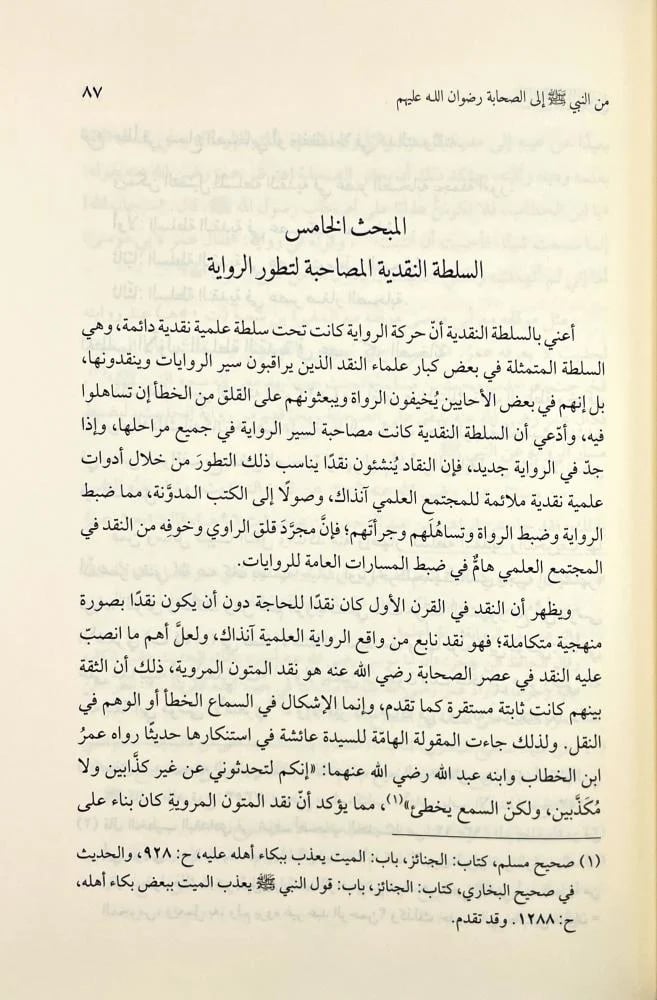 من النبي ﷺ إلى الصحابة رضوان الله عليهم
٨٧
المبحث الخامس
السلطة النقدية المصاحبة لتطور الرواية
أعني بالسلطة النقدية أنّ حركة الرواية كانت تحت سلطة علمية نقدية دائمة، وهي
السلطة المتمثلة في بعض كبار علماء النقد الذين يراقبون سير الروايات وينقدونها،
بل إنهم في بعض الأحايين يُخيفون الرواة ويبعثونهم على القلق من الخطأ إن تساهلوا
فيه، وأدّعي أن السلطة النقدية كانت مصاحبة لسير الرواية في جميع مراحلها، وإذا
جدّ في الرواية جديد، فإن النقاد يُنشئون نقدًا يناسب ذلك التطورَ من خلال أدوات
علمية نقدية ملائمة للمجتمع العلمي آنذاك، وصولًا إلى الكتب المدوَّنة، مما ضبط
الرواية وضبط الرواة وتساهُلَهم وجرأتَهم؛ فإنَّ مجرَّدَ قلق الراوي وخوفِه من النقد في
المجتمع العلمي هامٌّ في ضبط المسارات العامة للروايات.
ويظهر أن النقد في القرن الأول كان نقدًا للحاجة دون أن يكون نقدًا بصورة
منهجية متكاملة؛ فهو نقد نابع من واقع الرواية العلمية آنذاك، ولعلَّ أهم ما انصبّ
عليه النقد في عصر الصحابة رضي الله عنه هو نقد المتون المروية، ذلك أن الثقة
بينهم كانت ثابتة مستقرة كما تقدم، وإنما الإشكال في السماع الخطأ أو الوهم في
النقل. ولذلك جاءت المقولة الهامّة للسيدة عائشة في استنكارها حديثًا رواه عمرُ
ابن الخطاب وابنه عبد الله رضي الله عنهما: «إنكم لتحدثوني عن غير كذَّابين ولا
مُكَذَّبين، ولكنّ السمع يخطئ»(١)، مما يؤكد أنّ نقد المتون المرويةِ كان بناء على
(١) صحيح مسلم، كتاب: الجنائز، باب: الميت يعذب ببكاء أهله عليه، ح: ٩٢٨، والحديث
في صحيح البخاري، كتاب: الجنائز، باب: قول النبي ﷺ يعذب الميت ببعض بكاء أهله،
ح: ١٢٨٨. وقد تقدم.